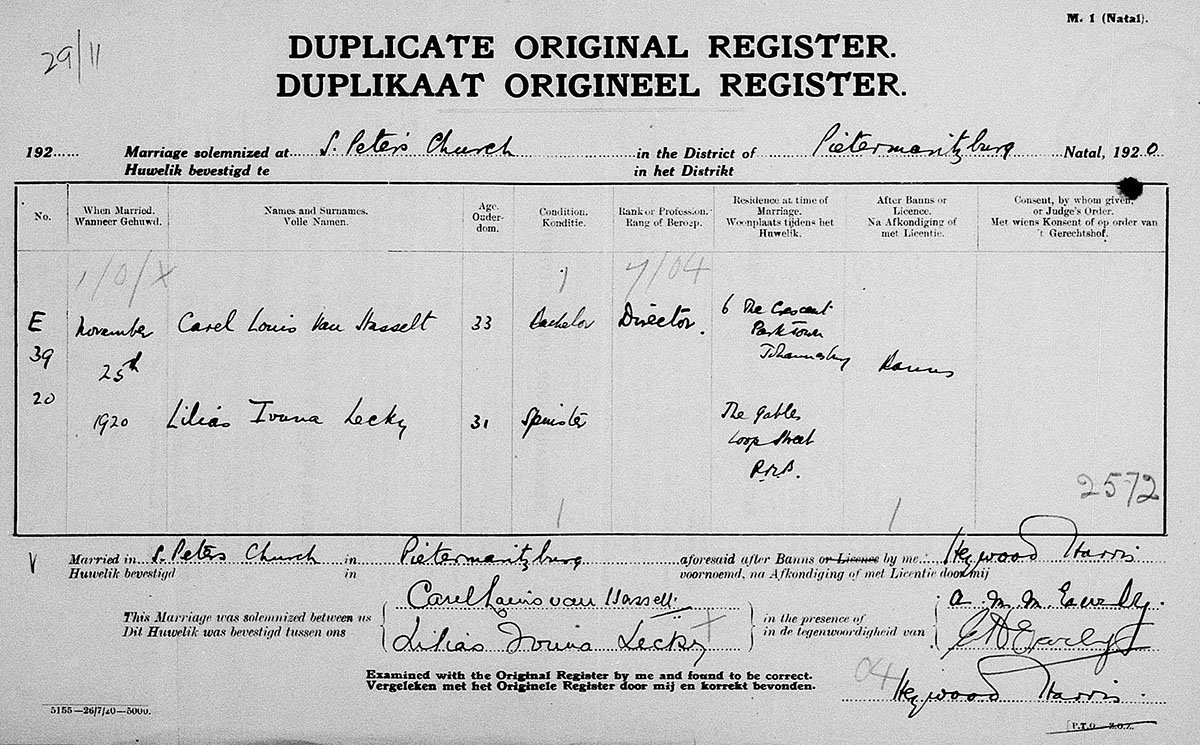 M. 1 (Natal).
29/11
DUPLICATE ORIGINAL REGISTER.
DUPLIKAAT ORIGINEEL REGISTER.
192...... Marriage solemnized at S. Peter's Church in the District of Pietermaritzburg Natal, 1920
Huwelik bevestigd te in het Distrikt
No. When Married. Names and Surnames. Age. Condition. Rank or Profession. Residence at time of Marriage. After Banns or Licence. Consent, by whom given, or Judge's Order.
Wanneer Gehuwd. Volle Namen. Ouder-dom. Konditie. Rang of Beroep. Woonplaats tijdens het Huwelik. Na Afkondiging of met Licentie. Met wiens Konsent of op order van 't Gerechtshof.
1/0/X 7/04
E November Carel Louis Van Hasselt 33 Bachelor Director. 6 The Crescent
39 25th Parktown
Johannesburg Banns
20 1920 Lilias Ivana Lecky 31 Spinster The Gables
Loop Street
P.M.B.
2572
Married in S. Peters Church in Pietermaritzburg aforesaid after Banns or Licence by me: Heywood Harris
Huwelik bevestigd in voornoemd, na Afkondiging of met Licentie door mij
This Marriage was solemnized between us Carel Louis van Hasselt in the presence of
Dit Huwelik was bevestigd tussen ons Lilias Lecky in de tegenwoordigheid van
Examined with the Original Register by me and found to be correct.
Vergeleken met het Originele Register door mij en korrekt bevonden.
04 Heywood Harris.
5155—26/7/20—5000.
[P.T.O. Z.O.Z.